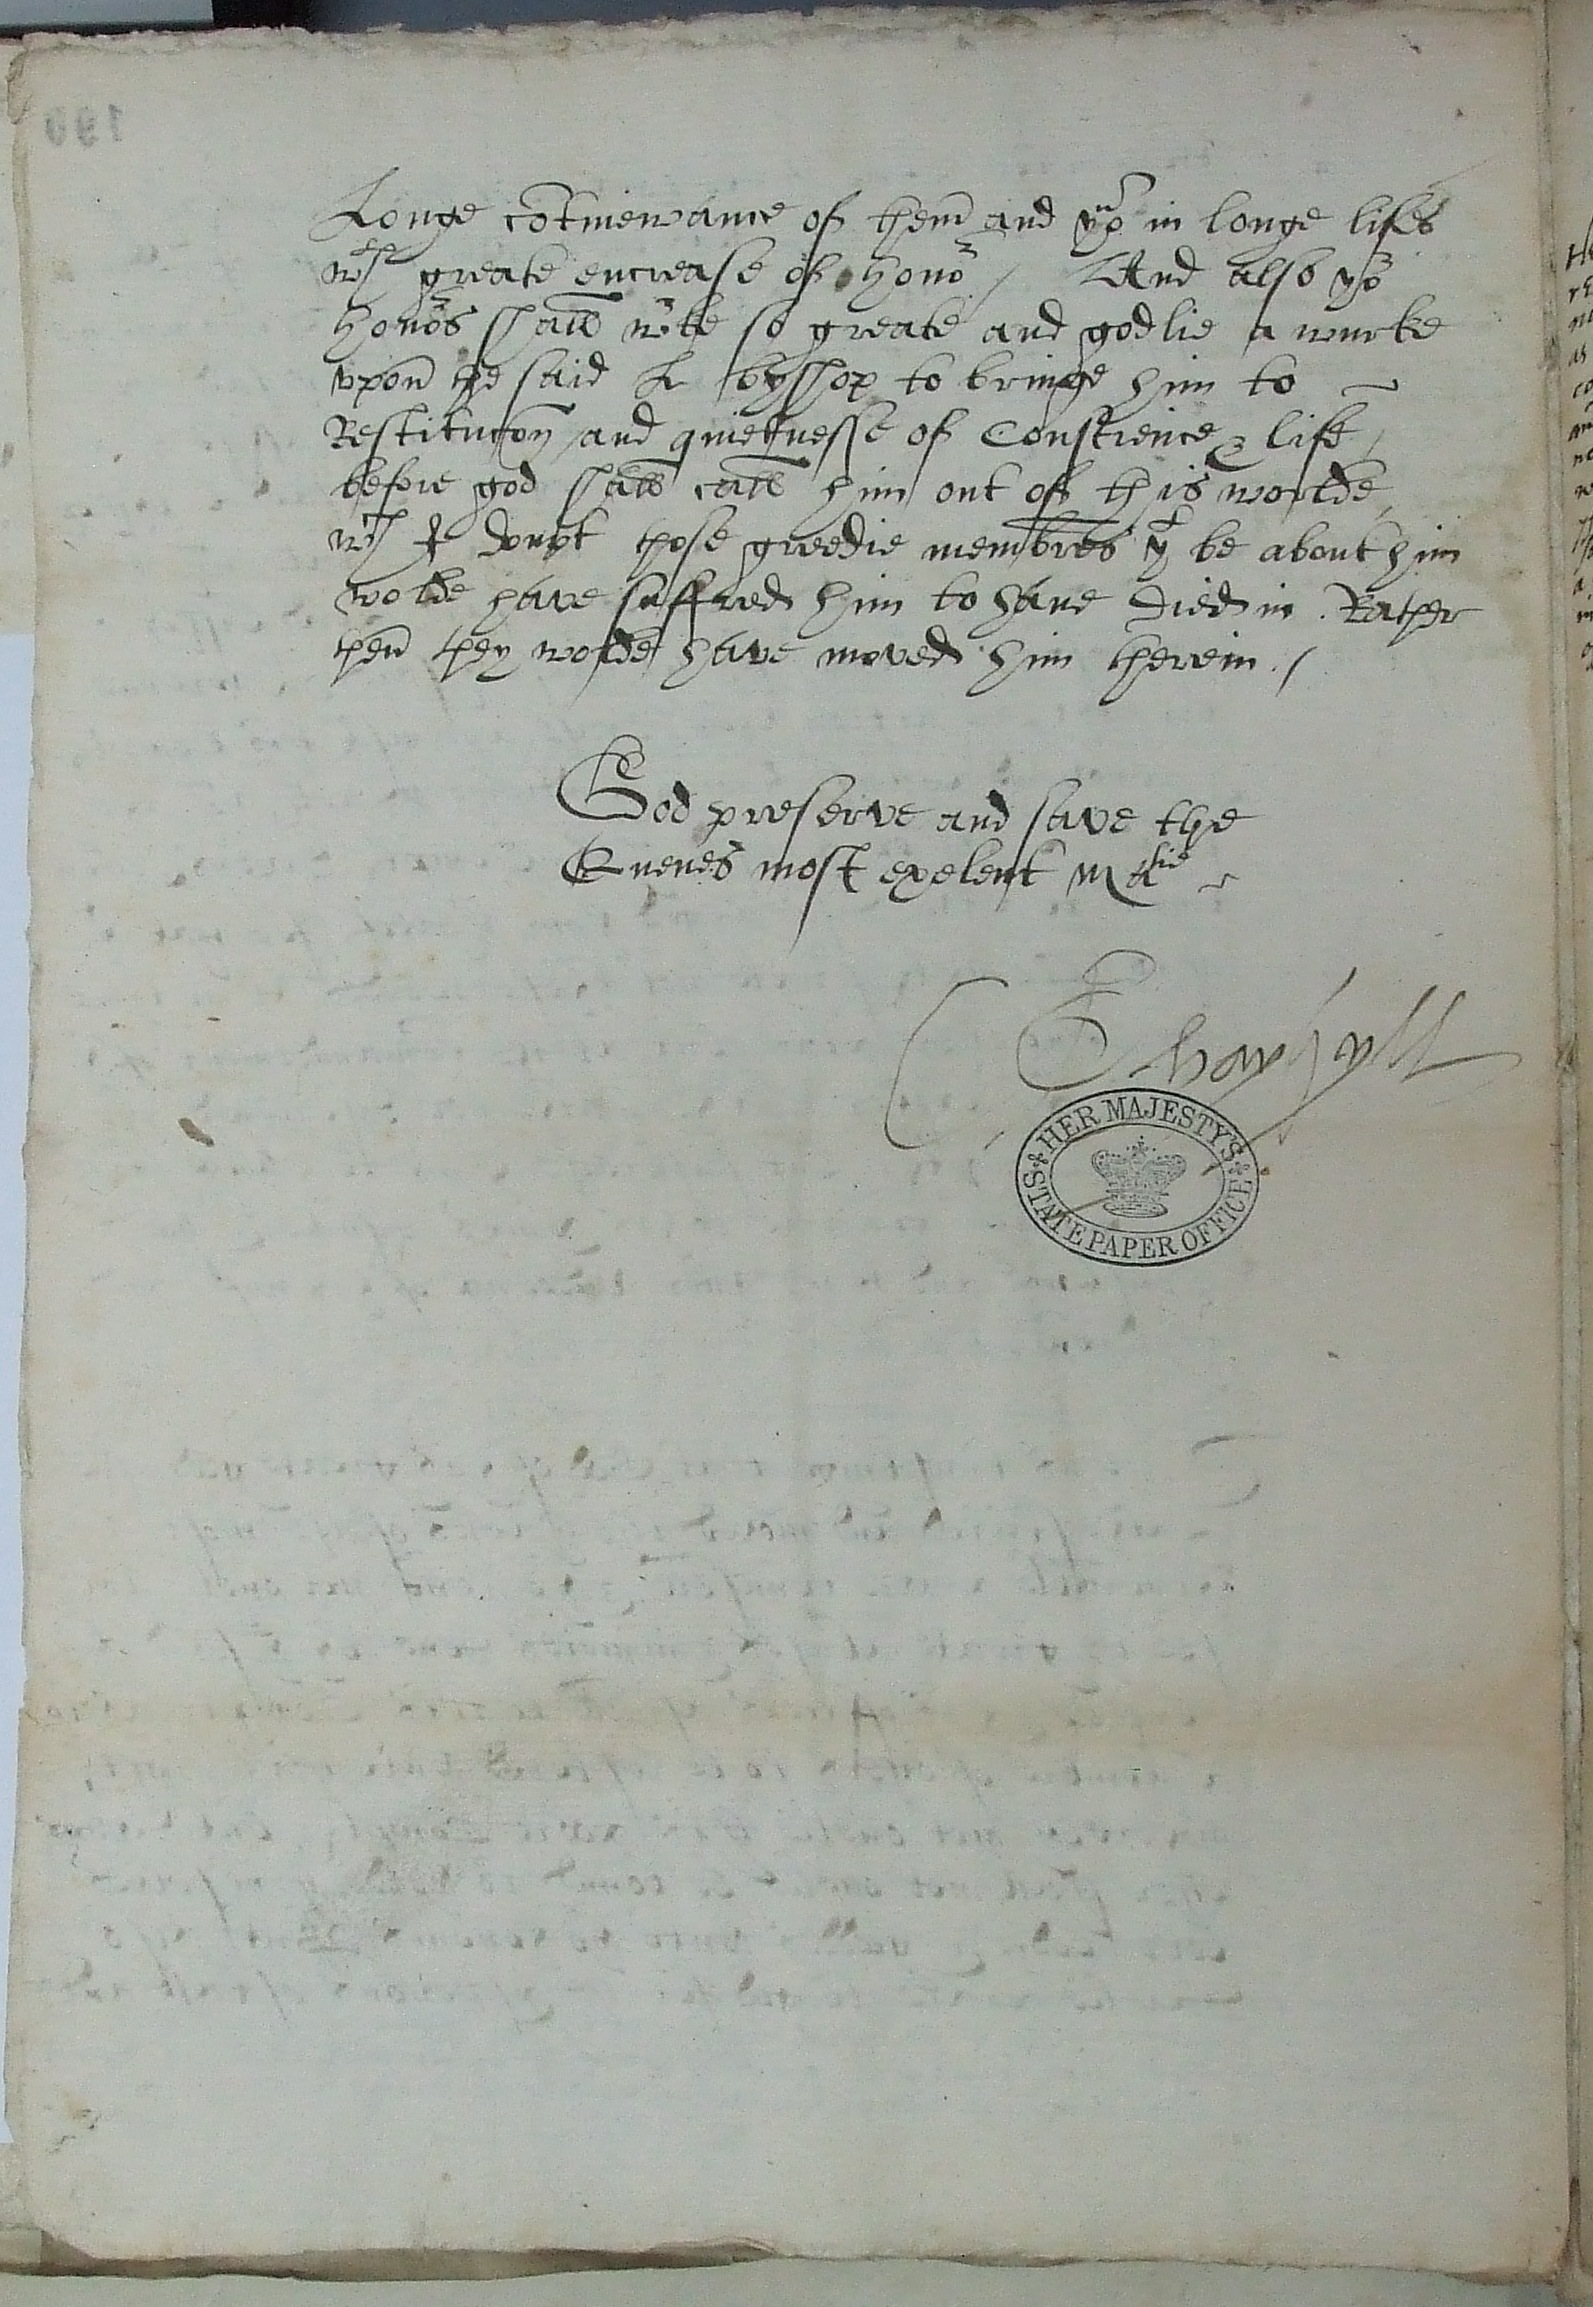 Longe cōtinewance of them̄ and yor in longe lifes
wth greate encrease of honor / And also yor
honors shall wtke so greate and godlie a wurke
vpon̄ the said L byshop to bringe him to
Restitucōn and quietnesse of Conscience & life /
before god shall call him out of this worlde,
wch I doubt those greedie membres yt be about him
wolde have suffred him to have died in. Rather
then̄ they wolde have moved him therein ./
God preserve and save the
Quenes most exelent Matie
HER MAJESTY'S
STATE PAPER OFFICE